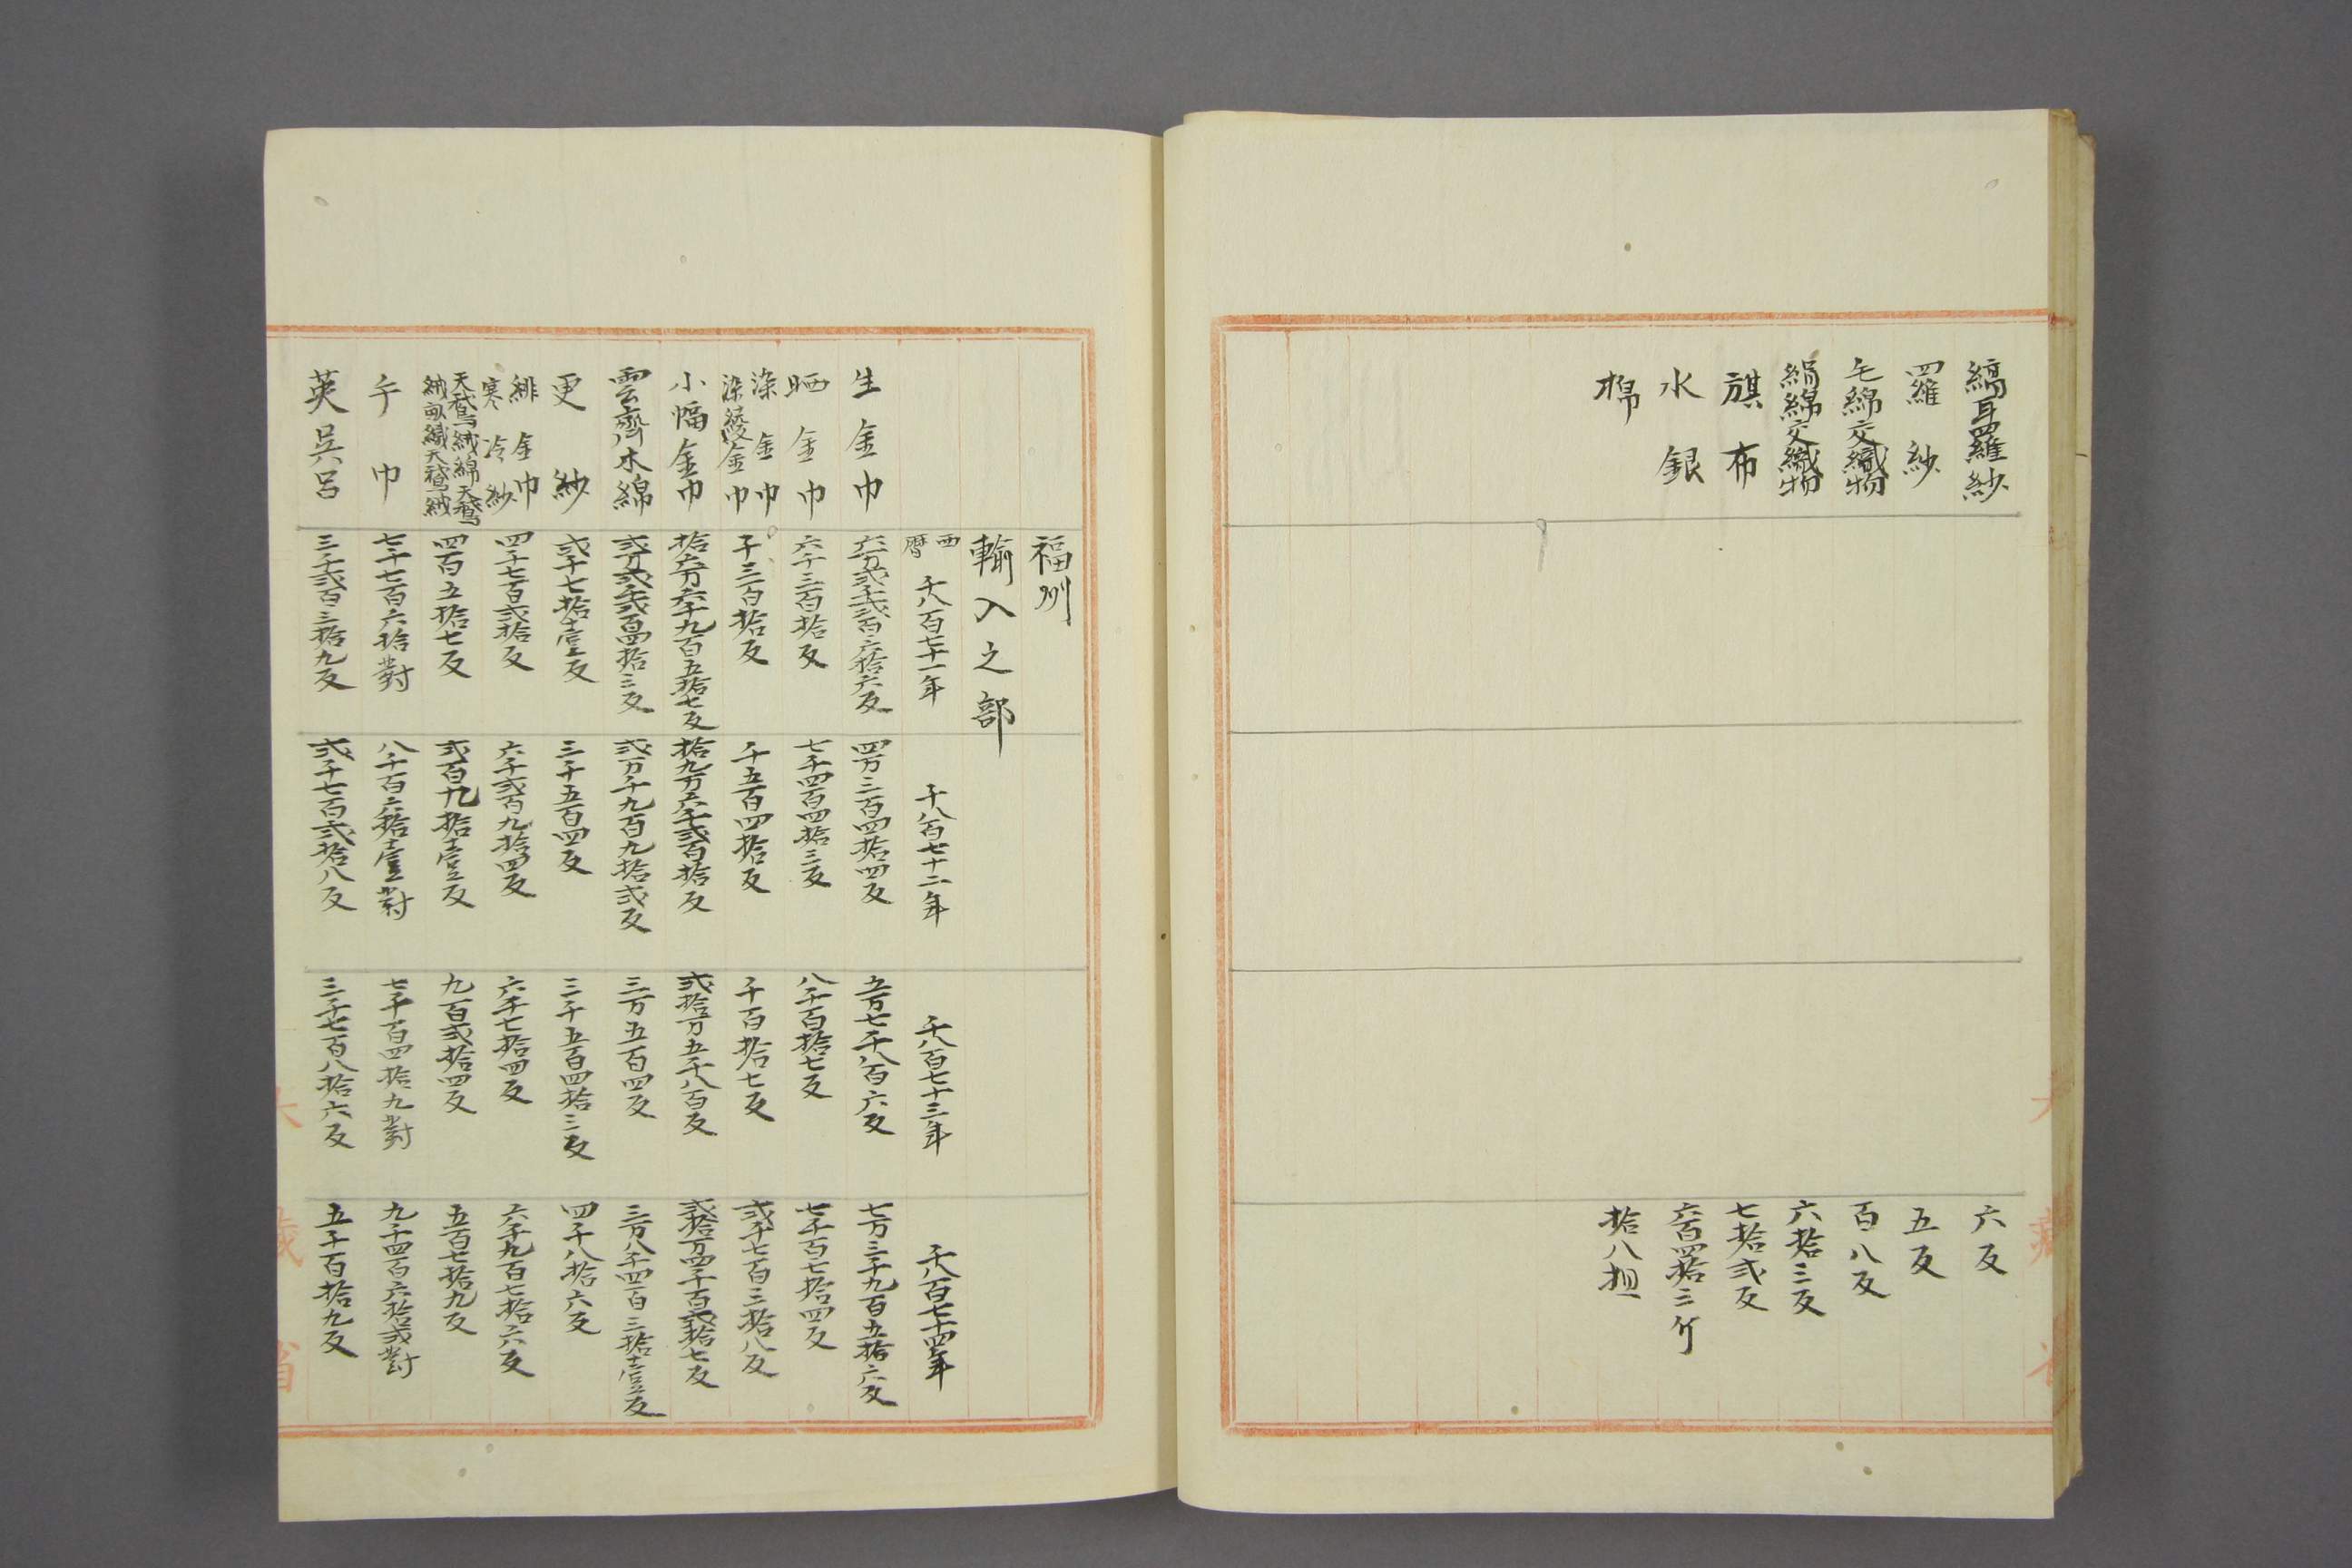 縞耳羅紗 六反
羅紗 五反
毛綿交織物 百八反
絹綿交織物 六拾三反
旗布 七拾弐反
水銀 六百四拾三斤
棉 拾八担
福州
輸入之部
西暦 千八百七十一年 千八百七十二年 千八百七十三年 千八百七十四年
生金巾 六万弐千弐百六拾六反 四万三百四拾四反 五万七千八百六反 七万三千九百五拾六反
晒金巾 六千三百拾反 七千四百四拾三反 八千百拾七反 七千百七拾四反
染金巾 染綾金巾 千三百拾反 千五百四拾反 千百拾七反 弐千七百三拾八反
小幅金巾 拾六万六千九百五拾七反 拾九万六千弐百拾反 弐拾万五千八百反 弐拾万四千百弐拾七反
雲齊木綿 弐万弐千弐百四拾三反 弐万千九百九拾弐反 三万五百四反 三万八千四百三拾壹反
更紗 弐千七拾壹反 三千五百四反 三千五百四拾三反 四千八拾六反
緋金巾 寒冷紗 四千七百弐拾反 六千弐百九拾四反 六千七拾四反 六千九百七拾六反
天鵞絨綿天鵞絨畝織天鵞絨 四百五拾七反 弐百九拾壹反 九百弐拾四反 五百七拾九反
手巾 七千七百六拾對 八千百六拾壹對 七千百四拾九對 九千四百六拾弐對
英呉呂 三千弐百三拾九反 弐千七百弐拾八反 三千七百八拾六反 五千百拾九反
大藏省